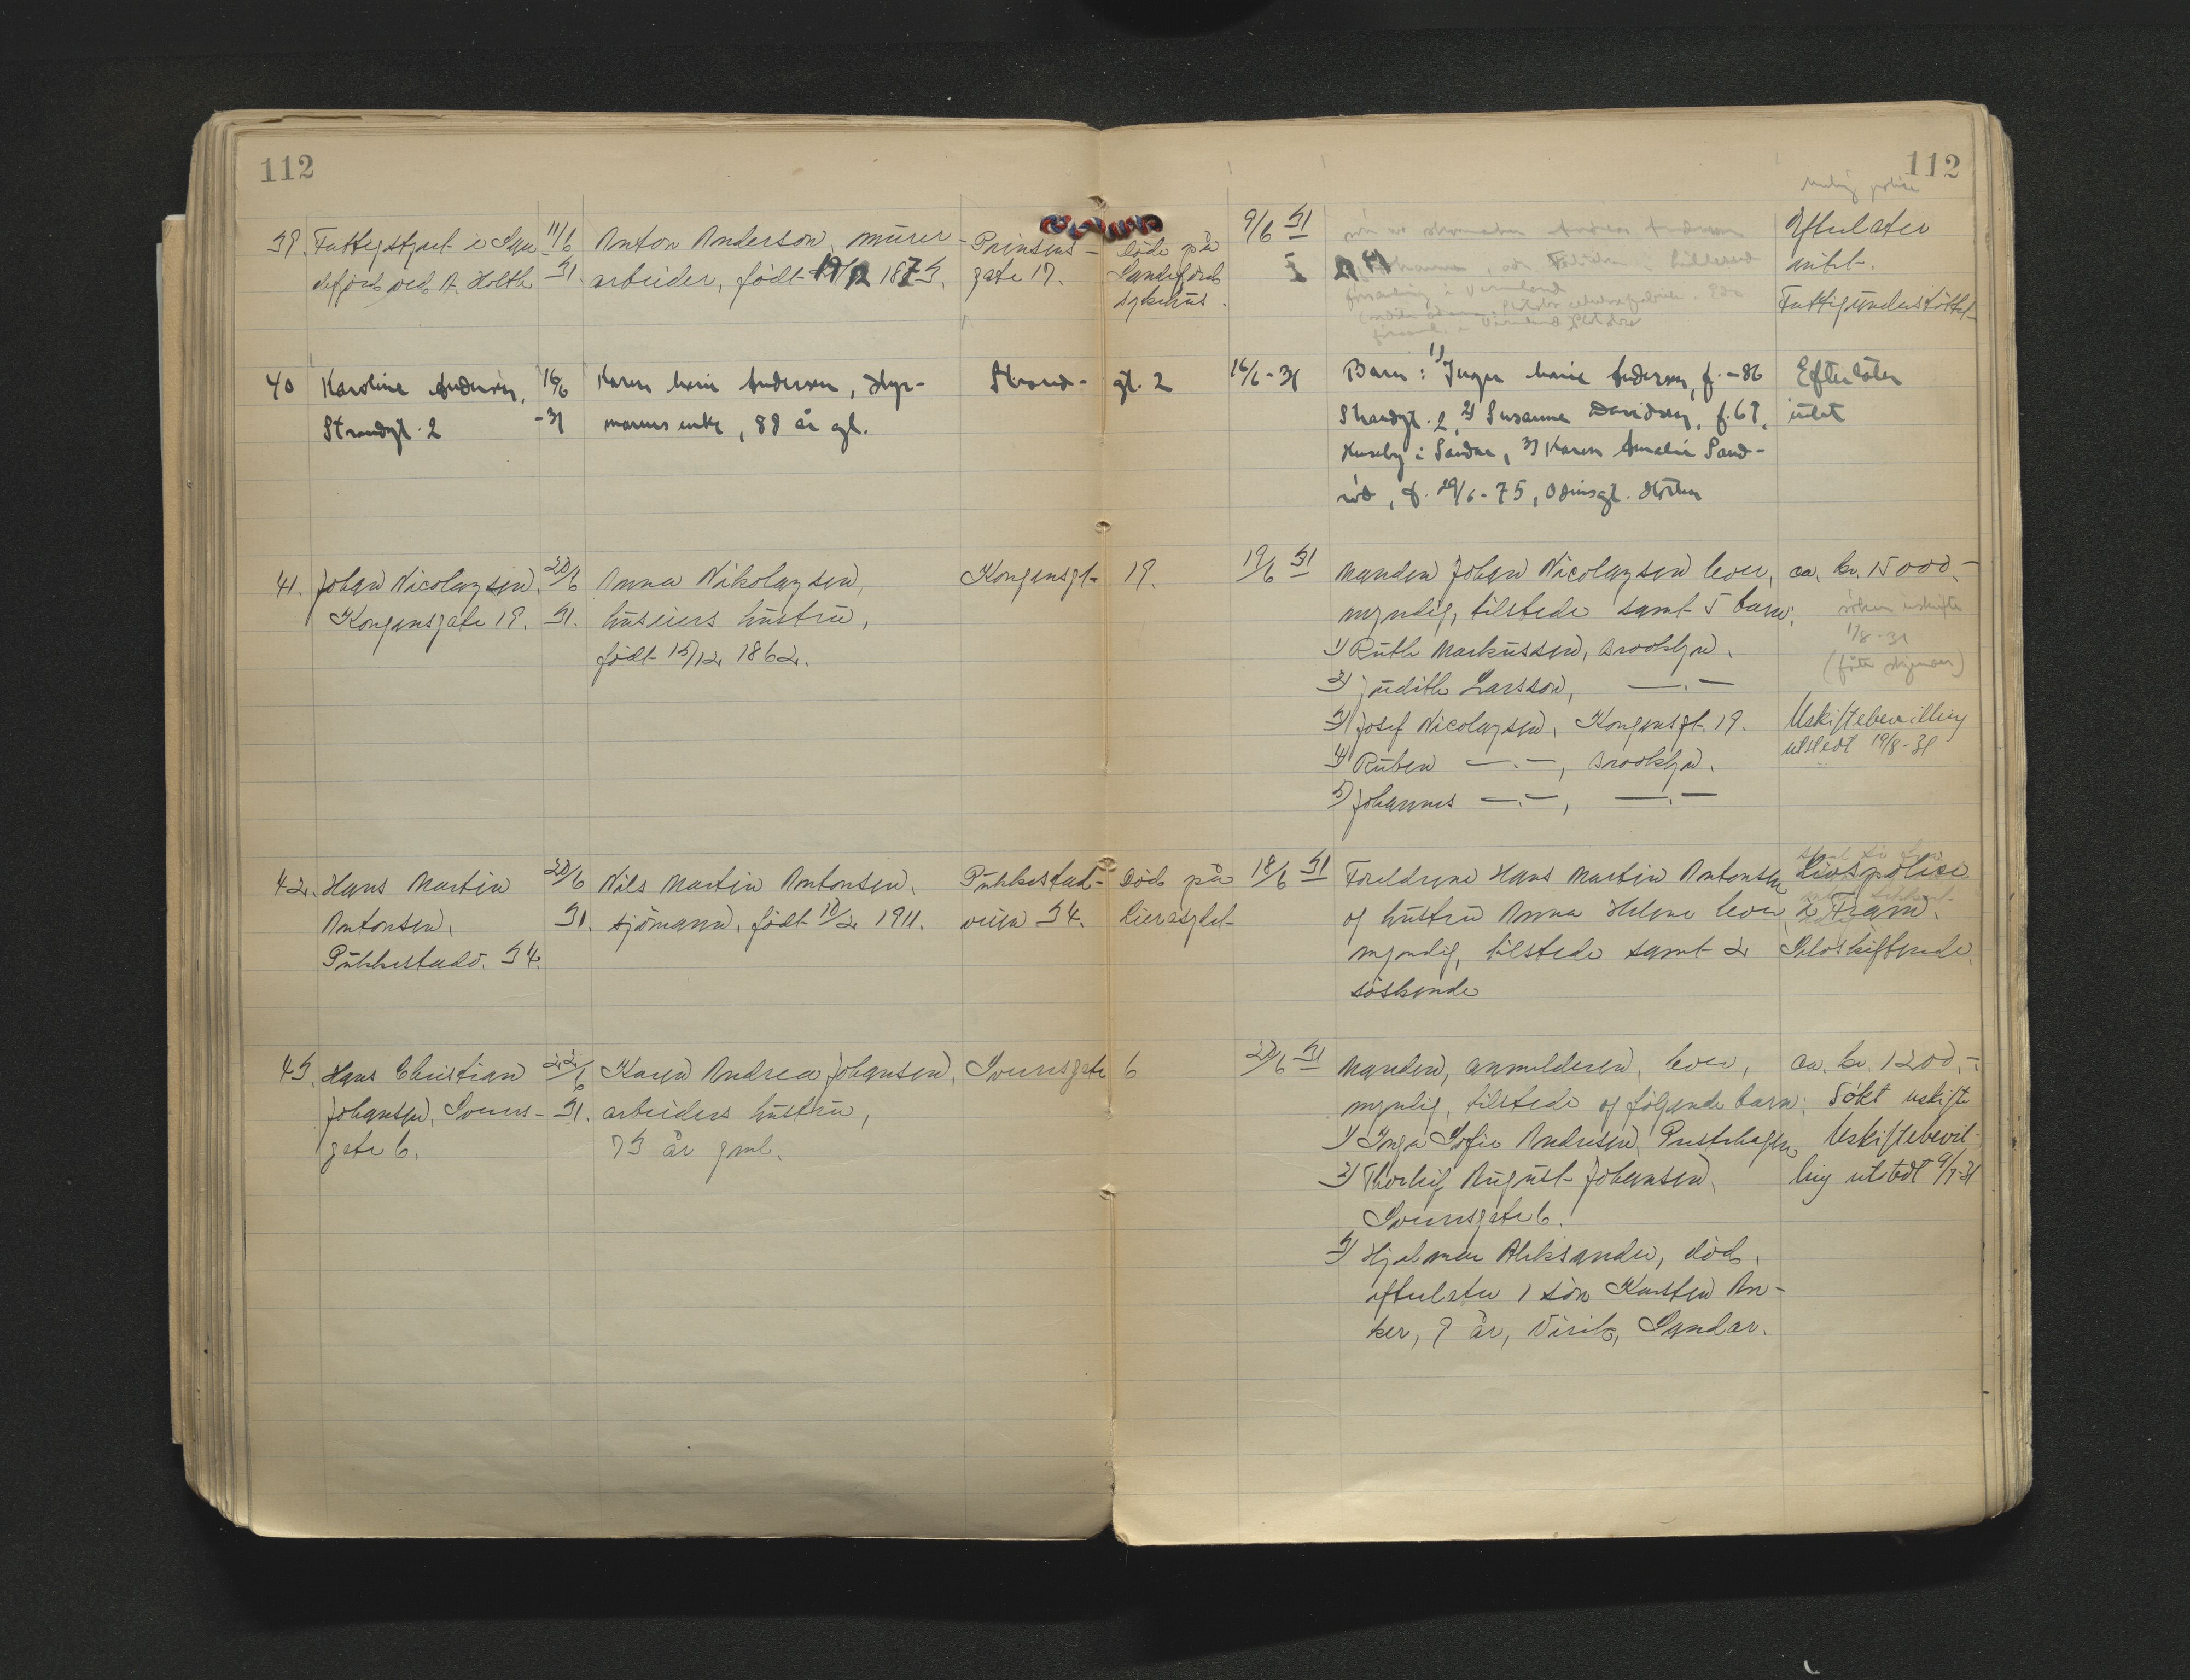 112
112
39. Fattigstyret i San
defjord ved A. Holth
11/6
31.
Anton Anderson, murer
arbeider, født 19/12 1873.
Prinsens-
gate 17.
Døde på
Sandefjord
sykehus.
9/6 31
Efterlater
intet.
Fattigunderstøttet
40 Karoline Andersen,
Strandgt. 2
16/6
-31
Karen Marie Andersen, styr-
manns enke, 88 år gl.
Strand- gt. 2
16/6-31
Barn: 1) Inger Marie Andersen, f. -86
Strandgt. 2, 2) Susanne Davidsen, f. 67,
Huseby i Sandar, 3) Karen Amalie Sand-
rød, f. 29/6-75, Odinsgt. Horten
Efterlater
intet
41. Johan Nicolaysen.
Kongensgate 19.
20/6
31.
Anna Nikolaysen,
huseiers hustru,
født 15/12 1862.
Kongensgt- 19.
19/6 31
Manden Johan Nicolaysen lever,
myndig, tilstede samt 5 barn:
1) Ruth Markussen, Brooklyn.
2) Judith Larsson, —.—
3) Josef Nicolaysen, Kongensgt. 19.
4) Ruben —.—, Brooklyn.
5) Johannes —.—, —.—
ca. kr. 15000.-
søker uskifte
1/8-31
Uskiftebevilling
utstedt 19/8-31
42. Hans Martin
Antonsen,
Pukkestadv. 34.
20/6
31.
Nils Martin Antonsen,
sjømann, født 10/2 1911.
Pukkestad-
veien 34.
Død på
Lieråsylet
18/6 31
Foreldrene Hans Martin Antonsen
og hustru Anna Helene lever
myndig, tilstede samt 2
søskende
Livspolise
i Fram.
Selvskiftende.
43. Hans Christian
Johansen, Sverres-
gate 6.
22/6
31.
Karen Andrea Johansen,
arbeiders hustru,
73 år gml.
Sverresgate 6
20/6 31
Manden, anmelderen, lever,
myndig, tilstede og følgende barn:
1) Inga Sofie Andresen, Prestehagen
2) Thorleif August Johansen,
Sverresgate 6.
3) Hjalmar Aleksander, død,
efterlater 1 søn Karsten An-
ker, 9 år, Virik, Sandar.
ca. kr. 1200.-
Søkt uskifte
Uskiftebevil-
ling utstedt 9/7-31